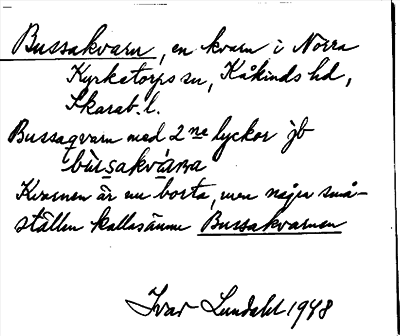 Bussakvarn, en kvarn i Norra
Kyrketorps sn, Kåkinds hd,
Skarab. l.
Bussaqvarn med 2ne lyckor jb
bùrsakvárna
Kvarnen är nu borta, men några små-
ställen kallas ännu Bussakvarnen
Ivar Lundahl 1948